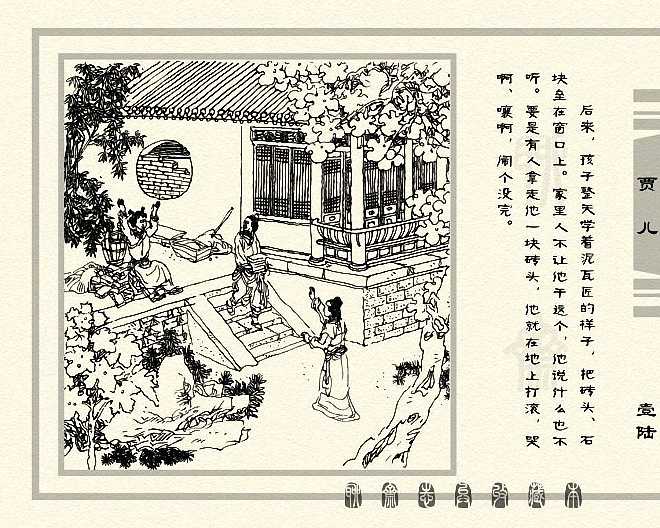 后来，孩子整天学着泥瓦匠的样子，把砖头、石
块垒在窗口上。家里人不让他干这个，他说什么也不
听。要是有人拿走他一块砖头，他就在地上打滚，哭
啊、嚷啊，闹个没完。
贾儿
壹陆